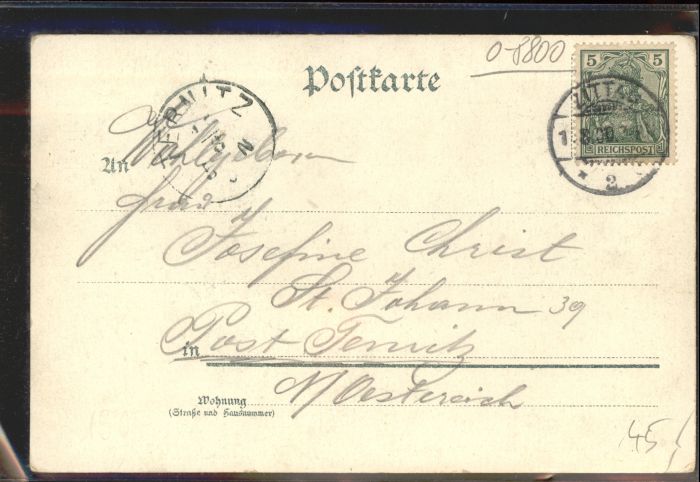 0-8800
Postkarte
5 5
REICHSPOST
ZITTAU
1 8.00
* 2
TERNITZ
An
Wohlgeboren
Frau
Josefine Christ
St. Johann 39
in Post Ternitz
N/Oesterreich
Wohnung
(Straße und Hausnummer)
45